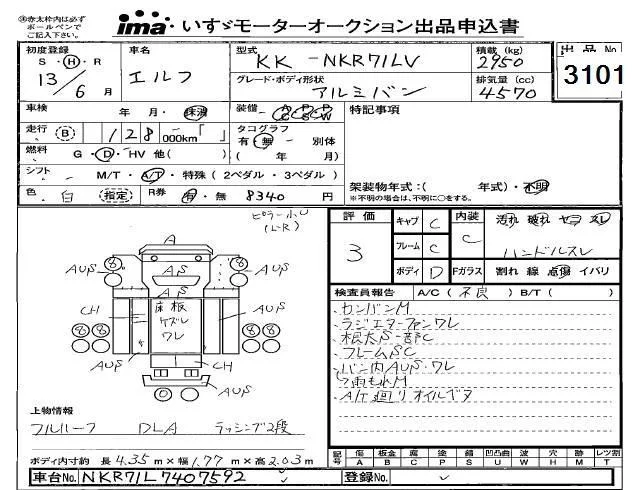 ※赤太枠内は必ず
ボールペンで
ご記入下さい。
ima いすゞモーターオークション出品申込書
初度登録
S・H・R
13/6月
車名
エルフ
型式
KK-NKR71LV
グレード・ボディ形状
アルミバン
積載(kg)
2950
排気量(cc)
4570
出品No
3101
車検 年・月・抹消
装備 AC PS PW
特記事項
走行 B 128000km「 」
タコグラフ
有・無 別体
( 年 月)
燃料 G・D・HV 他( )
シフト M/T・A/T・特殊(2ペダル・3ペダル)
架装物年式:( 年式)・不明
※不明の場合は、不明に○をする。
色 白 (指定) R券 有・無 8340円
ピラー小U
(L-R)
A
AUS
AUS
AS
AS
CH
床板
ケズレ
ワレ
AUS
AUS
CH
AUS
評価
3
キャブ C
フレーム C
ボディ D
内装 C
Fガラス
汚れ 破れ ヤコゲ スレ
ハンドルスレ
割れ 線 点傷 イバリ
検査員報告 A/C(不良) B/T( )
カンバンM
ラジエターファンワレ
根太S一部C
フレームSC
バン内AUS・ワレ
雨もれM
A/T廻りオイルボタ
上物情報
フルハーフ DLA ラッシング2段
ボディ内寸約 長4.35m×幅1.77m×高2.03m
記号 傷 A 板金 B 腐 C 塗 P 錆 S 凹凸曲 U 波 W 穴 H 跡 M レツ割 T
車台No. NKR71L7407592
登録No.